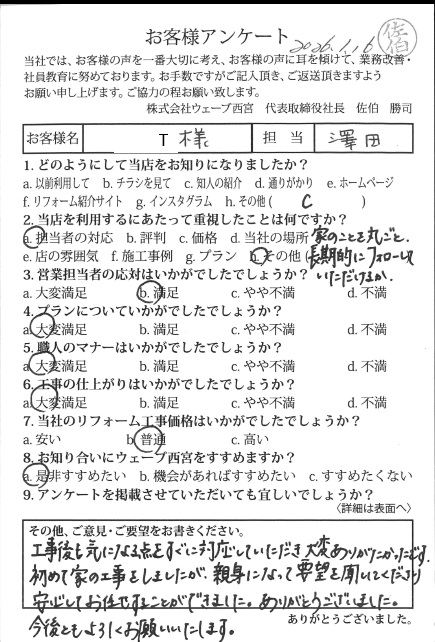 お客様アンケート 2026.1.16 佐伯
当社では、お客様の声を一番大切に考え、お客様の声に耳を傾けて、業務改善・
社員教育に努めております。お手数ですがご記入頂き、ご返送頂きますよう
お願い申し上げます。ご協力の程お願い致します。
株式会社ウェーブ西宮 代表取締役社長 佐伯 勝司
お客様名 T 様 担当 澤田
1. どのようにして当店をお知りになりましたか？
a. 以前利用して b. チラシを見て c. 知人の紹介 d. 通りがかり e. ホームページ
f. リフォーム紹介サイト g. インスタグラム h. その他 ( C )
2. 当店を利用するにあたって重視したことは何ですか？
a. 担当者の対応 b. 評判 c. 価格 d. 当社の場所 家のことを丸ごと、
e. 店の雰囲気 f. 施工事例 g. プラン h. その他 ( 長期的にフォローして
いただけるか。
3. 営業担当者の応対はいかがでしたでしょうか？
a. 大変満足 b. 満足 c. やや不満 d. 不満
4. プランについていかがでしたでしょうか？
a. 大変満足 b. 満足 c. やや不満 d. 不満
5. 職人のマナーはいかがでしたでしょうか？
a. 大変満足 b. 満足 c. やや不満 d. 不満
6. 工事の仕上がりはいかがでしたでしょうか？
a. 大変満足 b. 満足 c. やや不満 d. 不満
7. 当社のリフォーム工事価格はいかがでしたでしょうか？
a. 安い b. 普通 c. 高い
8. お知り合いにウェーブ西宮をすすめますか？
a. 是非すすめたい b. 機会があればすすめたい c. すすめたくない
9. アンケートを掲載させていただいても宜しいでしょうか？
〈詳細は表面へ〉
その他、ご意見・ご要望をお書きください。
工事後も気になる点をすぐに対応していただき大変ありがたかったです。
初めて家の工事をしましたが、親身になって要望を聞いてくださり
安心してお任せすることができました。ありがとうございました。
今後ともよろしくお願いいたします。
ありがとうございました。